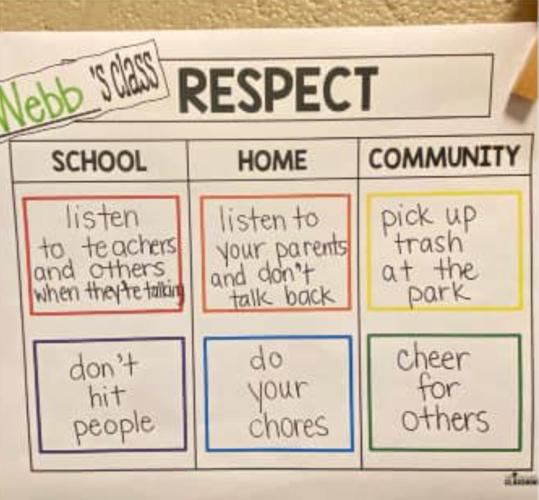 Webb's class
RESPECT
SCHOOL
HOME
COMMUNITY
listen
to teachers
and others
when they're talking
listen to
your parents
and don't
talk back
pick up
trash
at the
park
don't
hit
people
do
your
chores
cheer
for
others
CLASSROOM